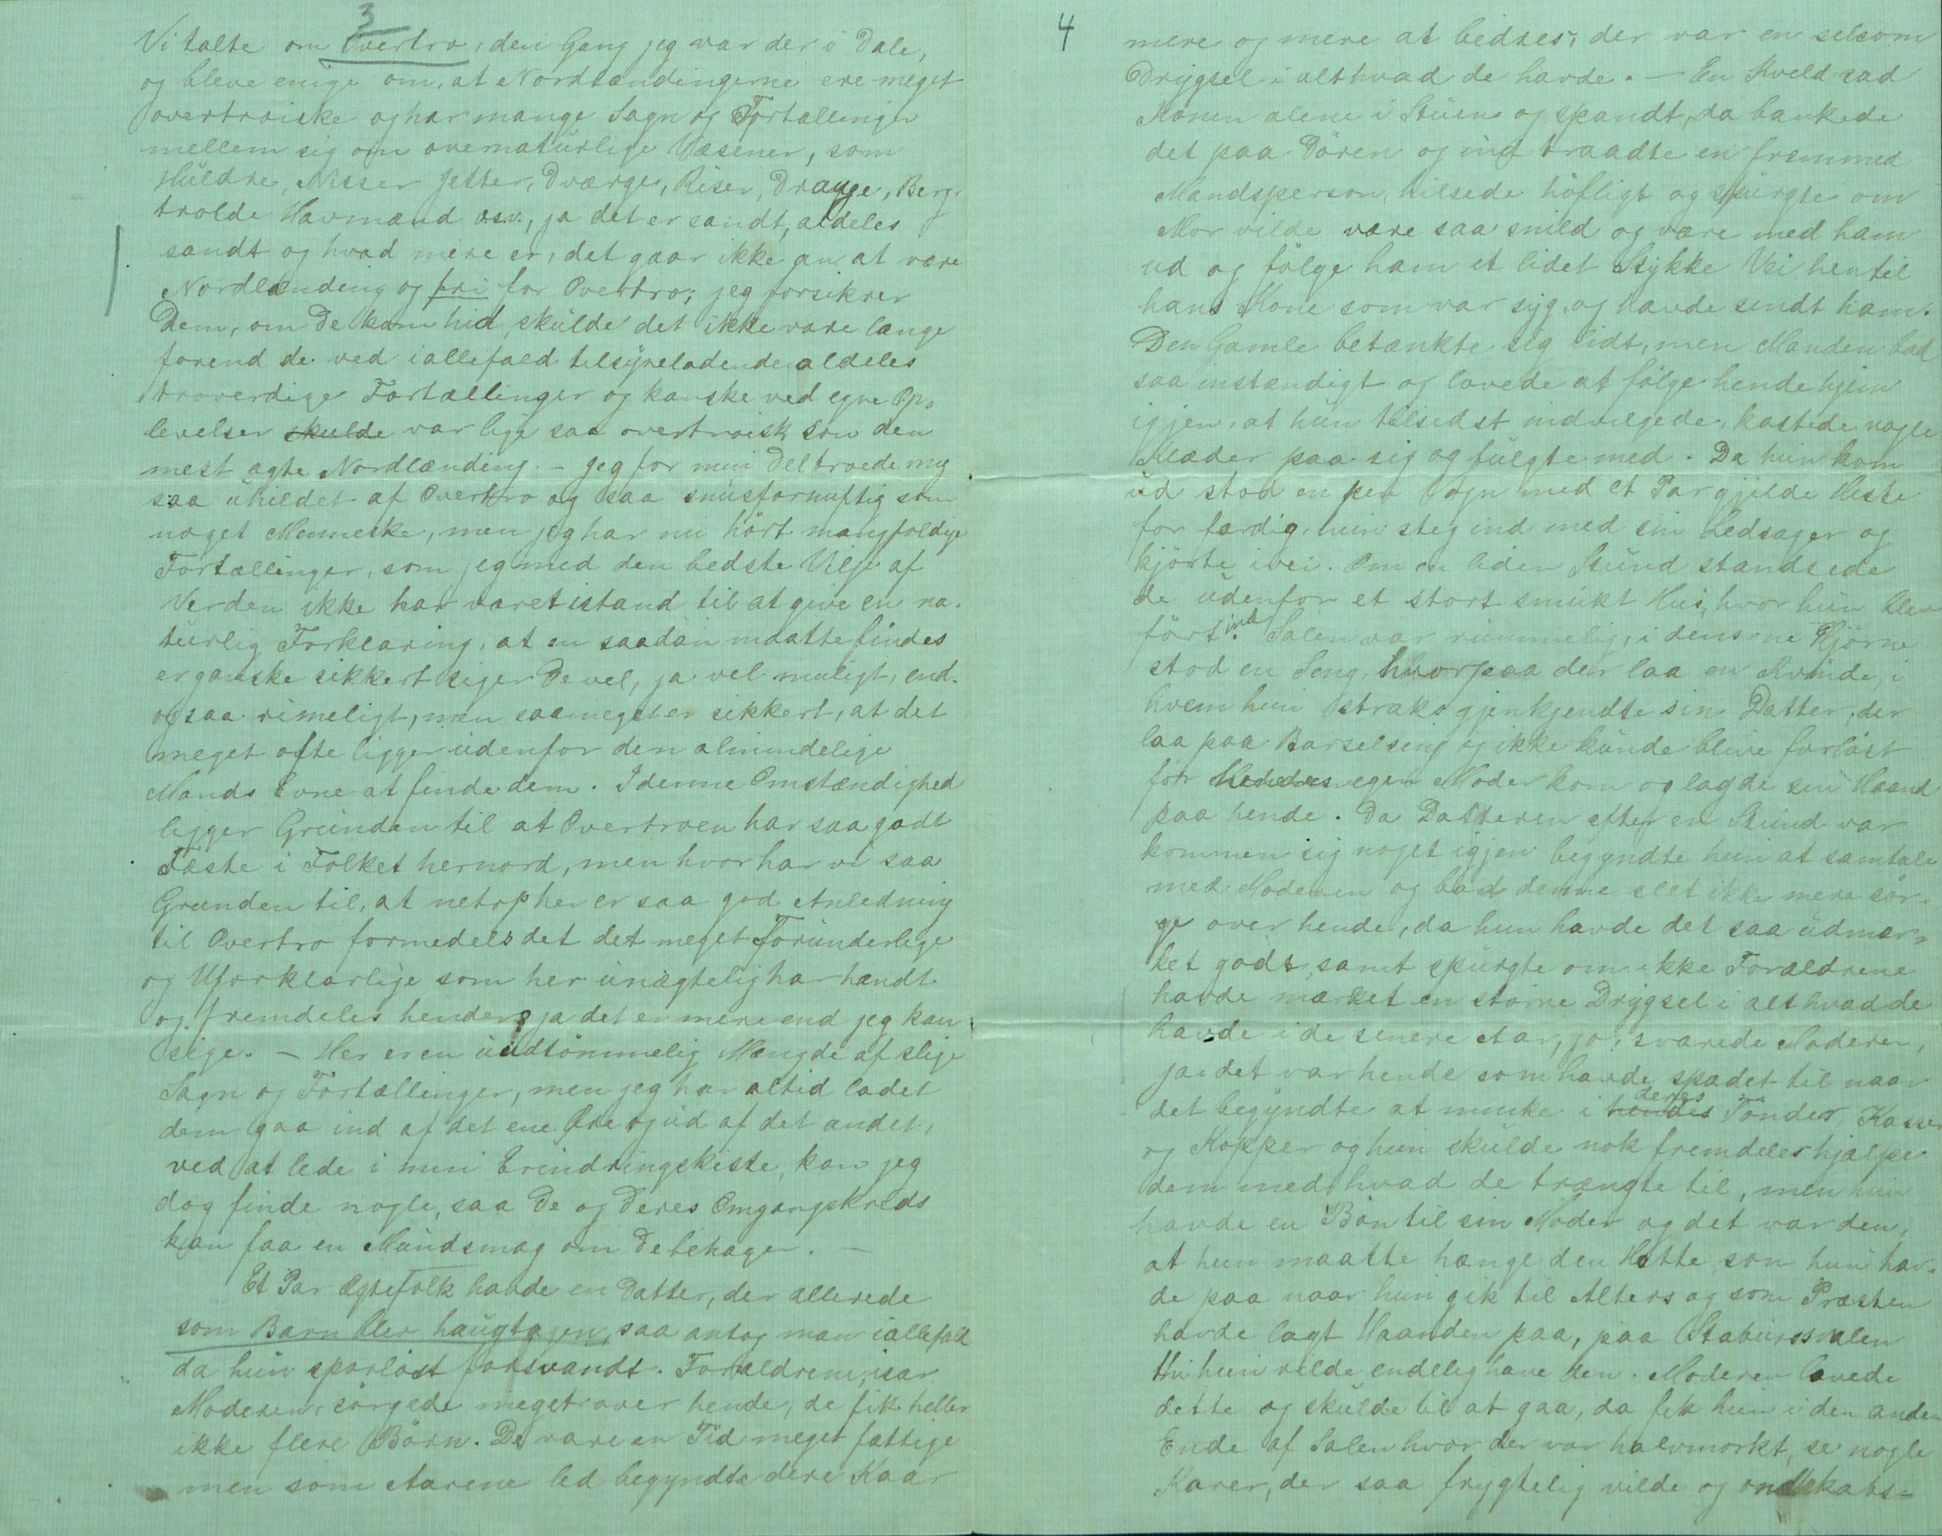 3
Vi talte om Overtro, den Gang jeg var der i Dale,
og bleve enige om, at Nordlændingerne ere meget
overtroiske og har mange Sagn og Fortællinger
mellem sig om overnaturlige Væsener, som
Huldre, Nisser Jetter, Dværge, Riser, Drauge, Berg-
trolde Havmænd osv., ja det er sandt, aldeles
sandt og hvad mere er, det gaar ikke an at være
Nordlænding og fri for Overtro; jeg forsikrer
Dem, om De kom hid, skulde det ikke vare længe
førend de ved iallefald tilsyneladende aldeles
troverdige Fortællinger og kanske ved egne Op-
levelser skulde var lige saa overtroisk som den
mest ægte Nordlænding. – Jeg for min Del troede mig
saa uhildet af Overtro og saa snusfornuftig som
noget Menneske, men jeg har nu hört mangfoldige
Fortællinger, som jeg med den bedste Vilje af
Verden ikke har været istand til at give en na-
turlig Forklaring, at en saadan maatte findes
er ganske sikkert siger De vel, ja vel muligt, end-
ogsaa rimeligt, men saameget er sikkert, at det
meget ofte ligger udenfor den almindelige
Mands Evne at finde dem. I denne Omstændighed
ligger Grunden til at Overtroen har saa godt
Fæste i Folket hernord, men hvor har vi saa
Grunden til, at netop her er saa god Anledning
til Overtro formedelst det meget Forunderlige
og Uforklarlige som her unægtelig har hændt
og fremdeles hender, ja det er mere end jeg kan
sige. – Her er en uudtömmelig Mængde af slige
Sagn og Fortællinger, men jeg har altid ladet
dem gaa ind af det ene Øre og ud af det andet,
ved at lede i min Erindringskiste, kan jeg
dog finde nogle, saa De og Deres Omgangskreds
kan faa en Mundsmag om De behager. –
Et Par Ægtefolk havde en Datter, der allerede
som Barn blev haugtagen, saa antog man iallefald
da hun sporløst forsvandt. Forældrene, især
Moderen, sörgede meget over hende, de fik heller
ikke flere Börn. De vare en Tid meget fattige
men som Aarene led begyndte dere Kaar
4
mere og mere at bedres, der var en selsom
Drygsel i alt hvad de havde. – En Kveld sad
Konen alene i Stuen og spandt, da bankede
det paa Dören og ind traadte en fremmed
Mandsperson, hilsede höfligt og spurgte om
Mor vilde være saa snild og være med ham
ud og fölge ham et lidet Stykke Vei hentil
hans Kone som var syg og havde sendt ham.
Den Gamle betænkte sig lidt, men Manden bad
saa instændigt og lovede at fölge hende hjem
igjen, at hun tilsidst indvilgede, kastede nogle
Klæder paa sig og fulgte med. Da hun kom
ud stod en pen Vogn med et Par gjilde Heste
for færdig, hun steg ind med sin Ledsager og
kjörte ivei. Om en liden Stund standsede
de udenfor et stort smukt Hus, hvor hun blev
fört ind. Salen var rummelig, i dens ene Hjörne
stod en Seng, hvorpaa der laa en Kvinde, i
hvem hun straks gjenkjendte sin Datter, der
laa paa Barselseng og ikke kunde blive forlöst
för hendes egen Moder kom og lagde sin Haand
paa hende. Da Datteren efter en Stund var
kommen sig noget igjen begyndte hun at samtale
med Moderen og bad denne slet ikke mere sör-
ge over hende, da hun havde det saa udmær-
ket godt, samt spurgte om ikke Forældrene
havde mærket en större Drygsel i alt hvad de
havde i de senere Aar, jo, svarede Moderen,
ja det var hende som havde spædet til naar
det begyndte at minke i hendes deres Tönder, Kasser
og Kopper og hun skulde nok fremdeles hjælpe
dem med hvad de trængte til, men hun
havde en Bön til sin Moder og det var den,
at hun maatte hænge den Hette, som hun hav-
de paa naar hun gik til Alters og som Præsten
havde lagt Haanden paa, paa Stabursvalen
thi hun vilde endelig have den. Moderen lovede
dette og skulde til at gaa, da fik hun i den anden
Ende af Salen hvor der var halvmörkt, se nogle
Karer, der saa frygtelig vilde og ondskabs-